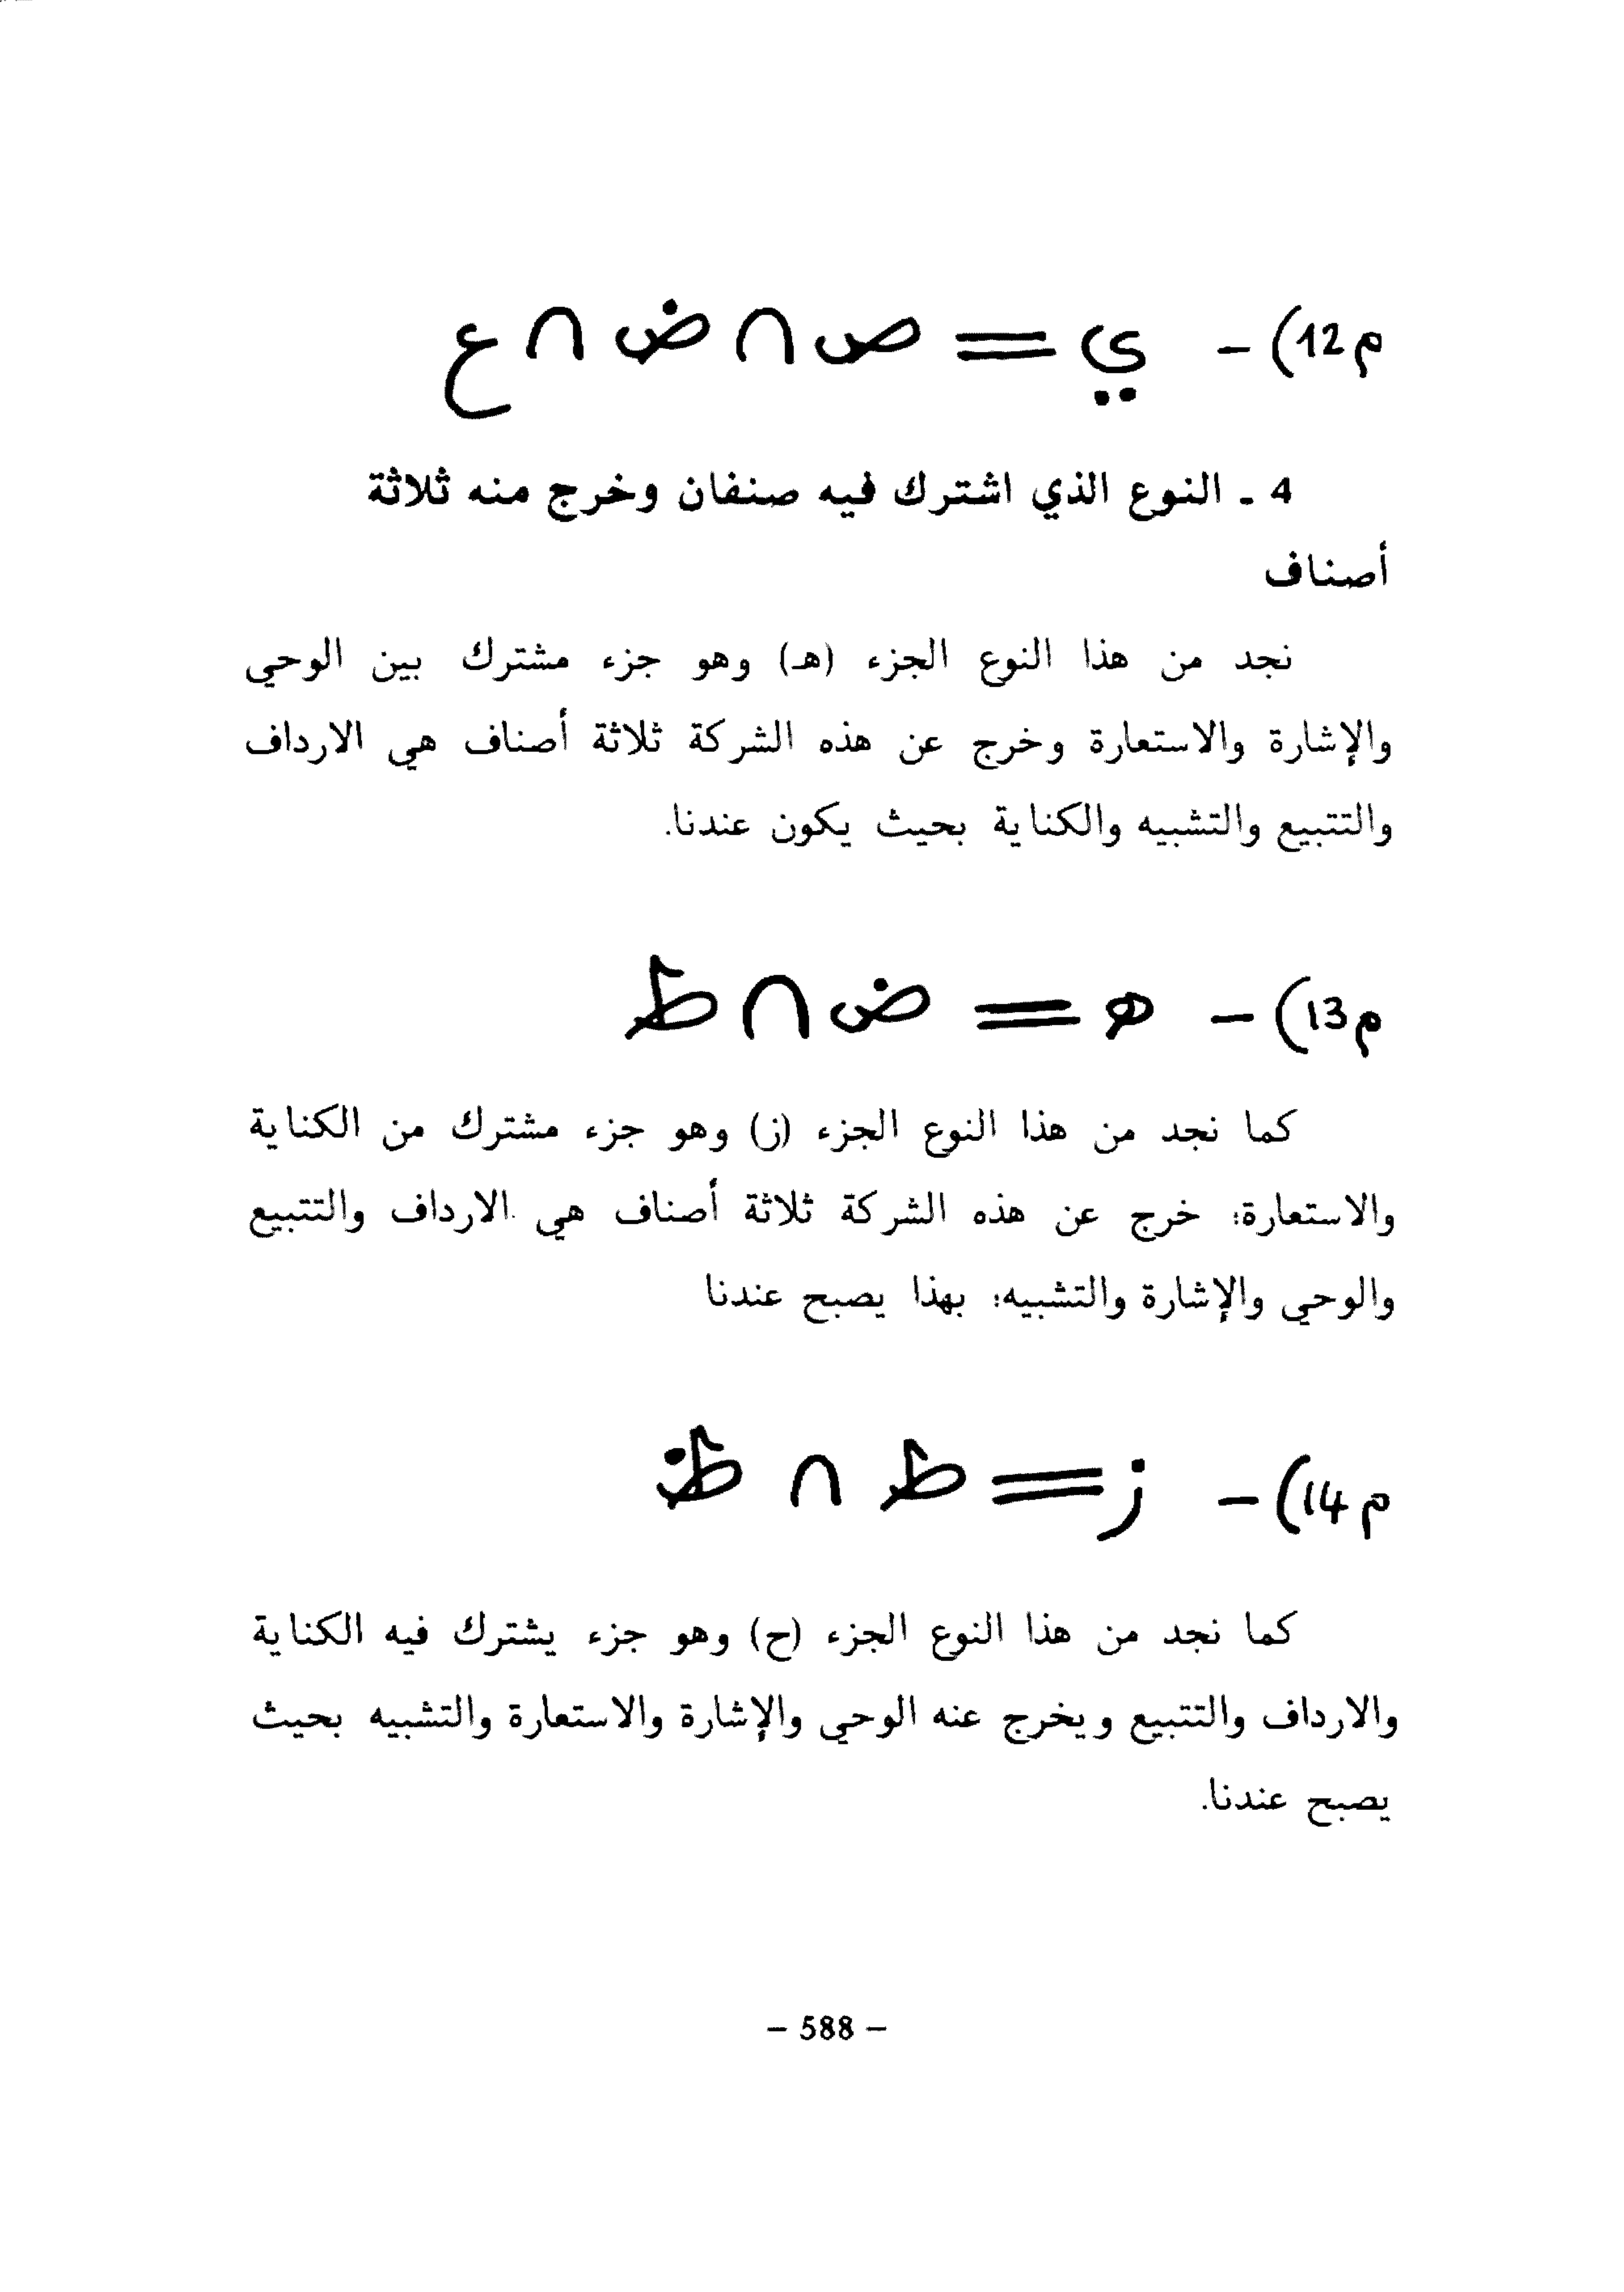 م12) - ي = ص ∩ ض ∩ ع
4 ـ النوع الذي اشترك فيه صنفان وخرج منه ثلاثة
أصناف
نجد من هذا النوع الجزء (هـ) وهو جزء مشترك بين الوحي
والإشارة والاستعارة وخرج عن هذه الشركة ثلاثة أصناف هي الارداف
والتتبيع والتشبيه والكناية بحيث يكون عندنا.
م13) - ه = ض ∩ ط
كما نجد من هذا النوع الجزء (ز) وهو جزء مشترك من الكناية
والاستعارة؛ خرج عن هذه الشركة ثلاثة أصناف هي الارداف والتتبيع
والوحي والإشارة والتشبيه؛ بهذا يصبح عندنا
م14) - ز = ط ∩
كما نجد من هذا النوع الجزء (ح) وهو جزء يشترك فيه الكناية
والارداف والتتبيع ويخرج عنه الوحي والإشارة والاستعارة والتشبيه بحيث
يصبح عندنا.
– 588 –